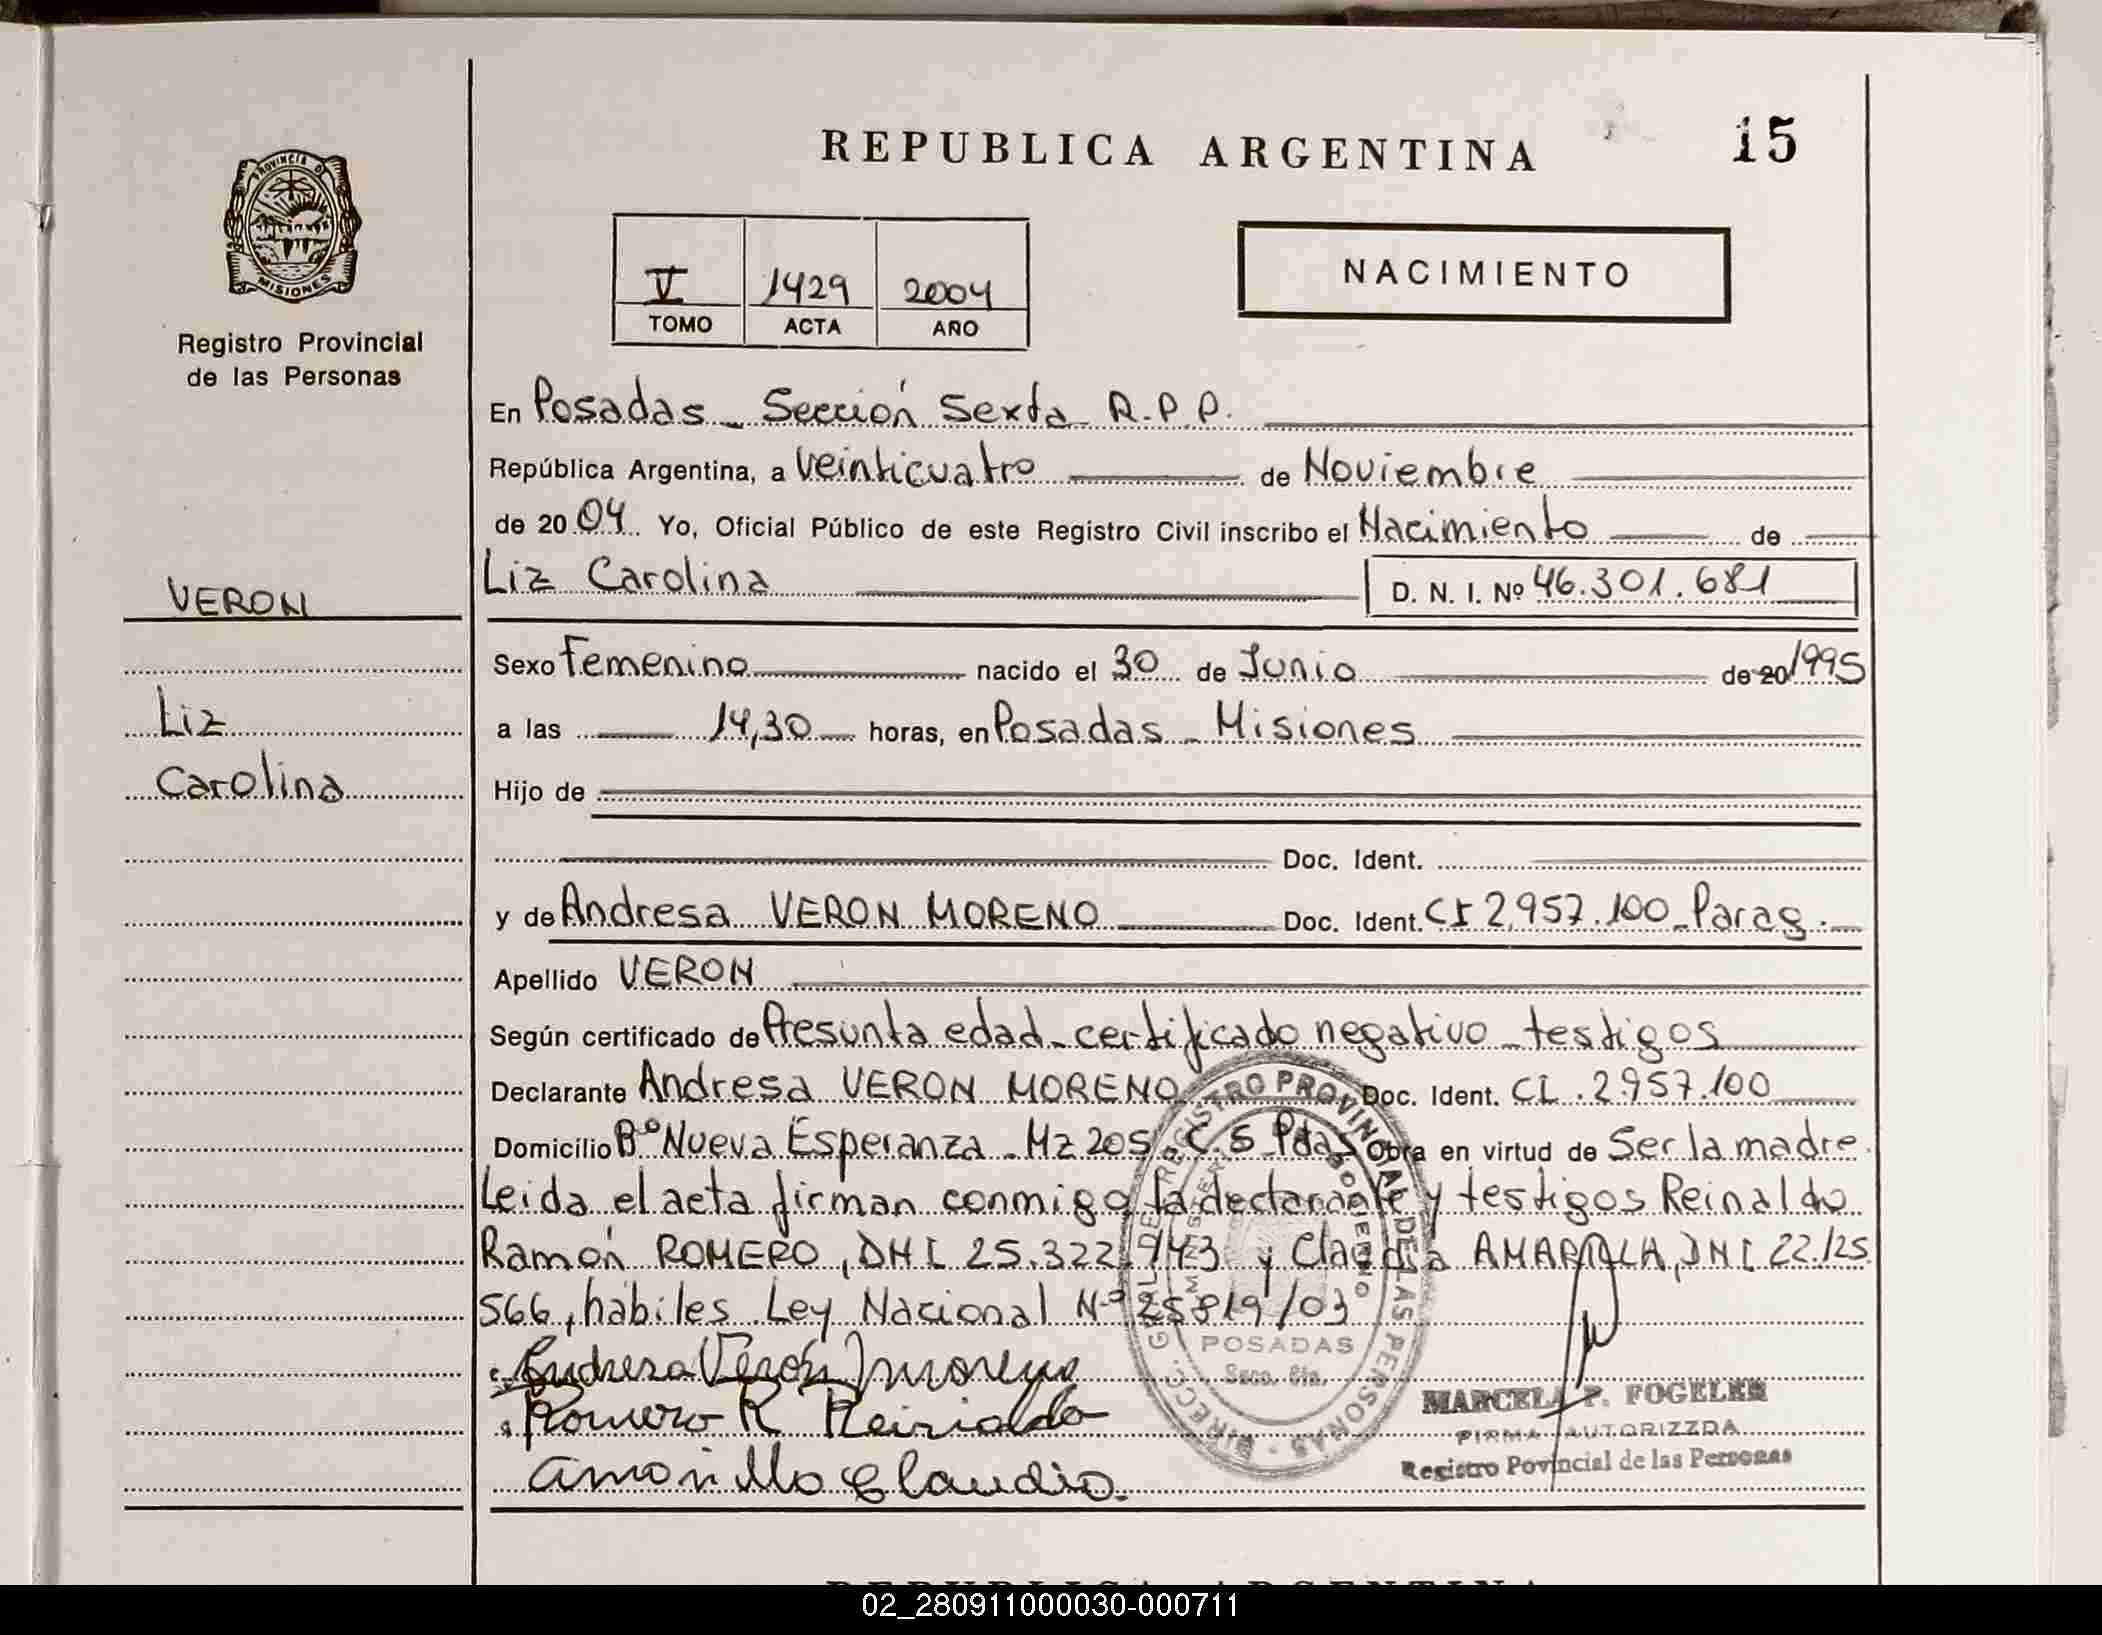 REPUBLICA ARGENTINA
15
PROVINCIA D
MISIONES
Registro Provincial
de las Personas
V 1429 2004
TOMO ACTA AÑO
NACIMIENTO
En Posadas - Sección Sexta R.P.P.
República Argentina, a veinticuatro de Noviembre
de 2004 Yo, Oficial Público de este Registro Civil inscribo el Nacimiento de
Liz Carolina D. N. I. Nº 46.301.681
VERON
Liz
Carolina
Sexo Femenino nacido el 30 de Junio de 20 1995
a las 14,30 horas, en Posadas - Misiones
Hijo de
Doc. Ident.
y de Andresa VERON MORENO Doc. Ident. CI 2,957.100 - Parag.
Apellido VERON
Según certificado de Presunta edad - certificado negativo - testigos
Declarante Andresa VERON MORENO Doc. Ident. CI. 2.957.100
Domicilio Bº Nueva Esperanza - Mz 205 C. 5 Pdas Obra en virtud de Ser la madre.
Leida el acta firman conmigo la declarante y testigos Reinaldo
Ramón ROMERO, DNI 25.322.943 y Claudia AMARILLA, DNI 22.125
566, hábiles Ley Nacional Nº 25819/03
Andresa Verón Moreno
Romero R Reinaldo
Amarilla Claudia.
DIRECC. GRAL. DE REGISTRO PROVINCIAL DE LAS PERSONAS
MINISTERIO GOBIERNO
POSADAS
Secc. 6ta.
MARCELA P. FOGELER
FIRMA AUTORIZZDA
Registro Povincial de las Personas
REPUBLICA ARGENTINA
02_280911000030-000711